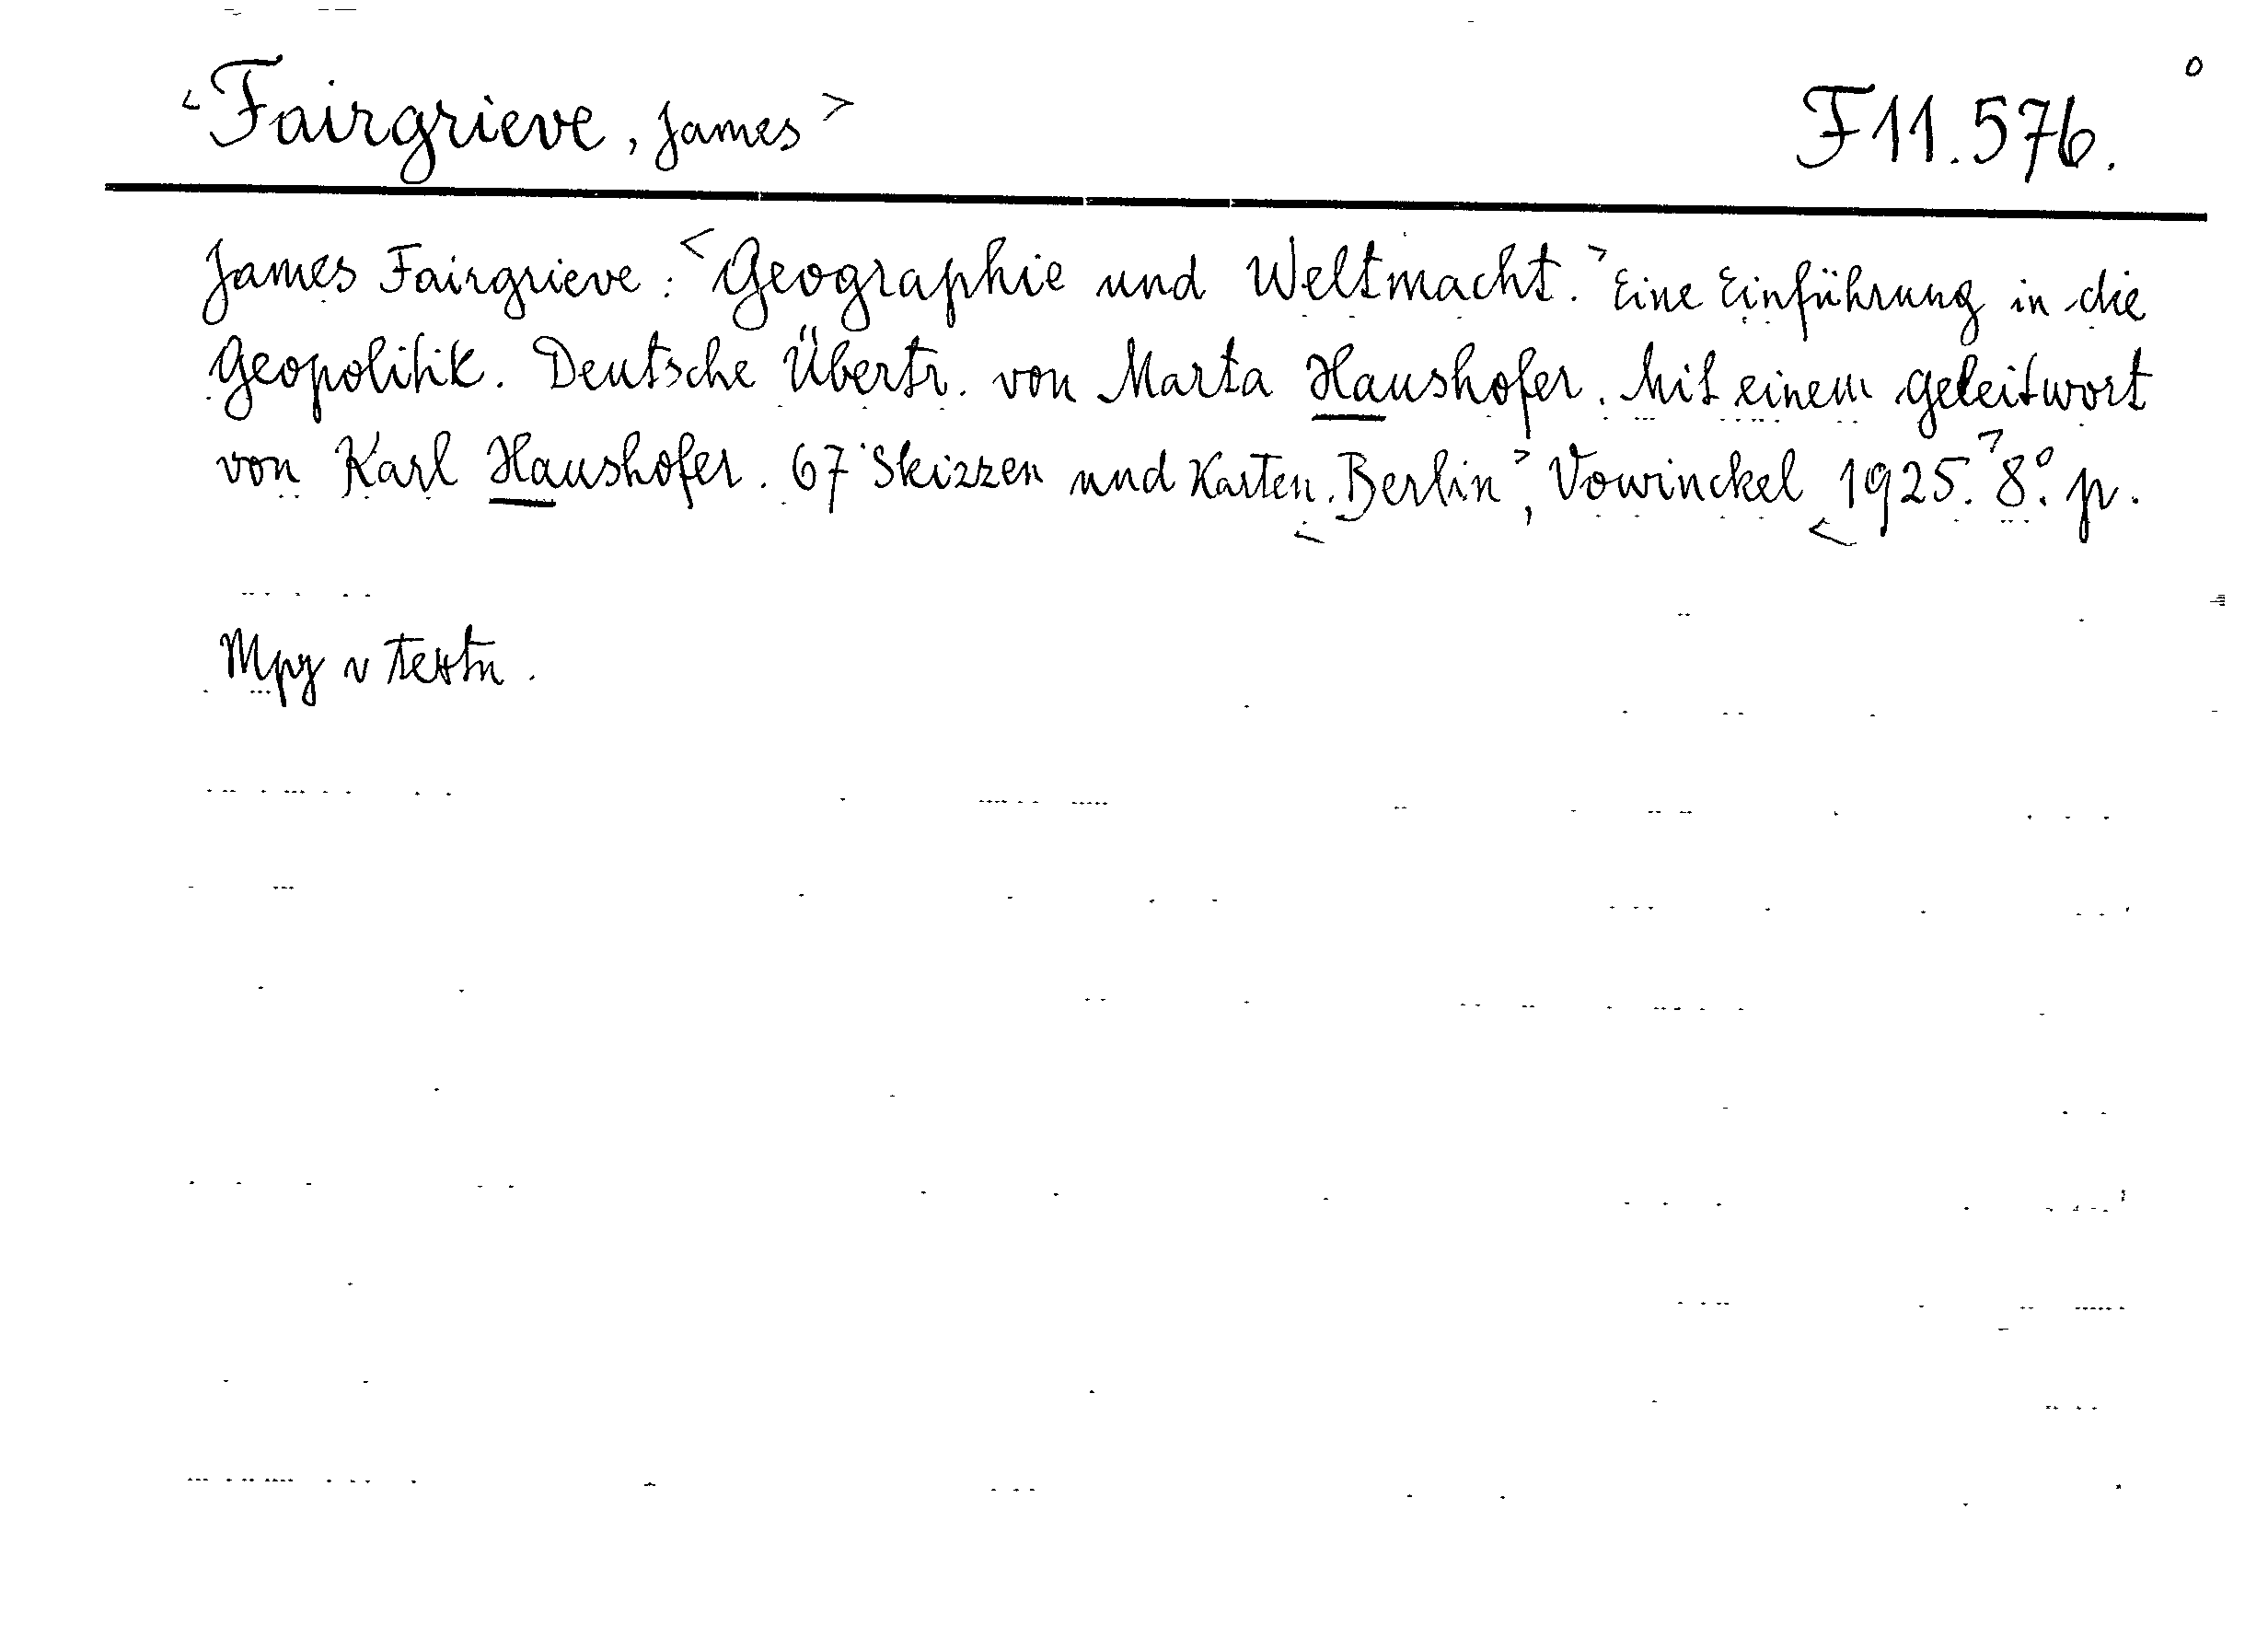 <Fairgrieve, James> F 11.576.
James Fairgrieve: <Geographie und Weltmacht.> Eine Einführung in die
Geopolitik. Deutsche Übertr. von Marta Haushofer. Mit einem Geleitwort
von Karl Haushofer. 67 Skizzen und Karten. <Berlin>, Vowinckel <1925.> 8°. p.
Mpy v textu.